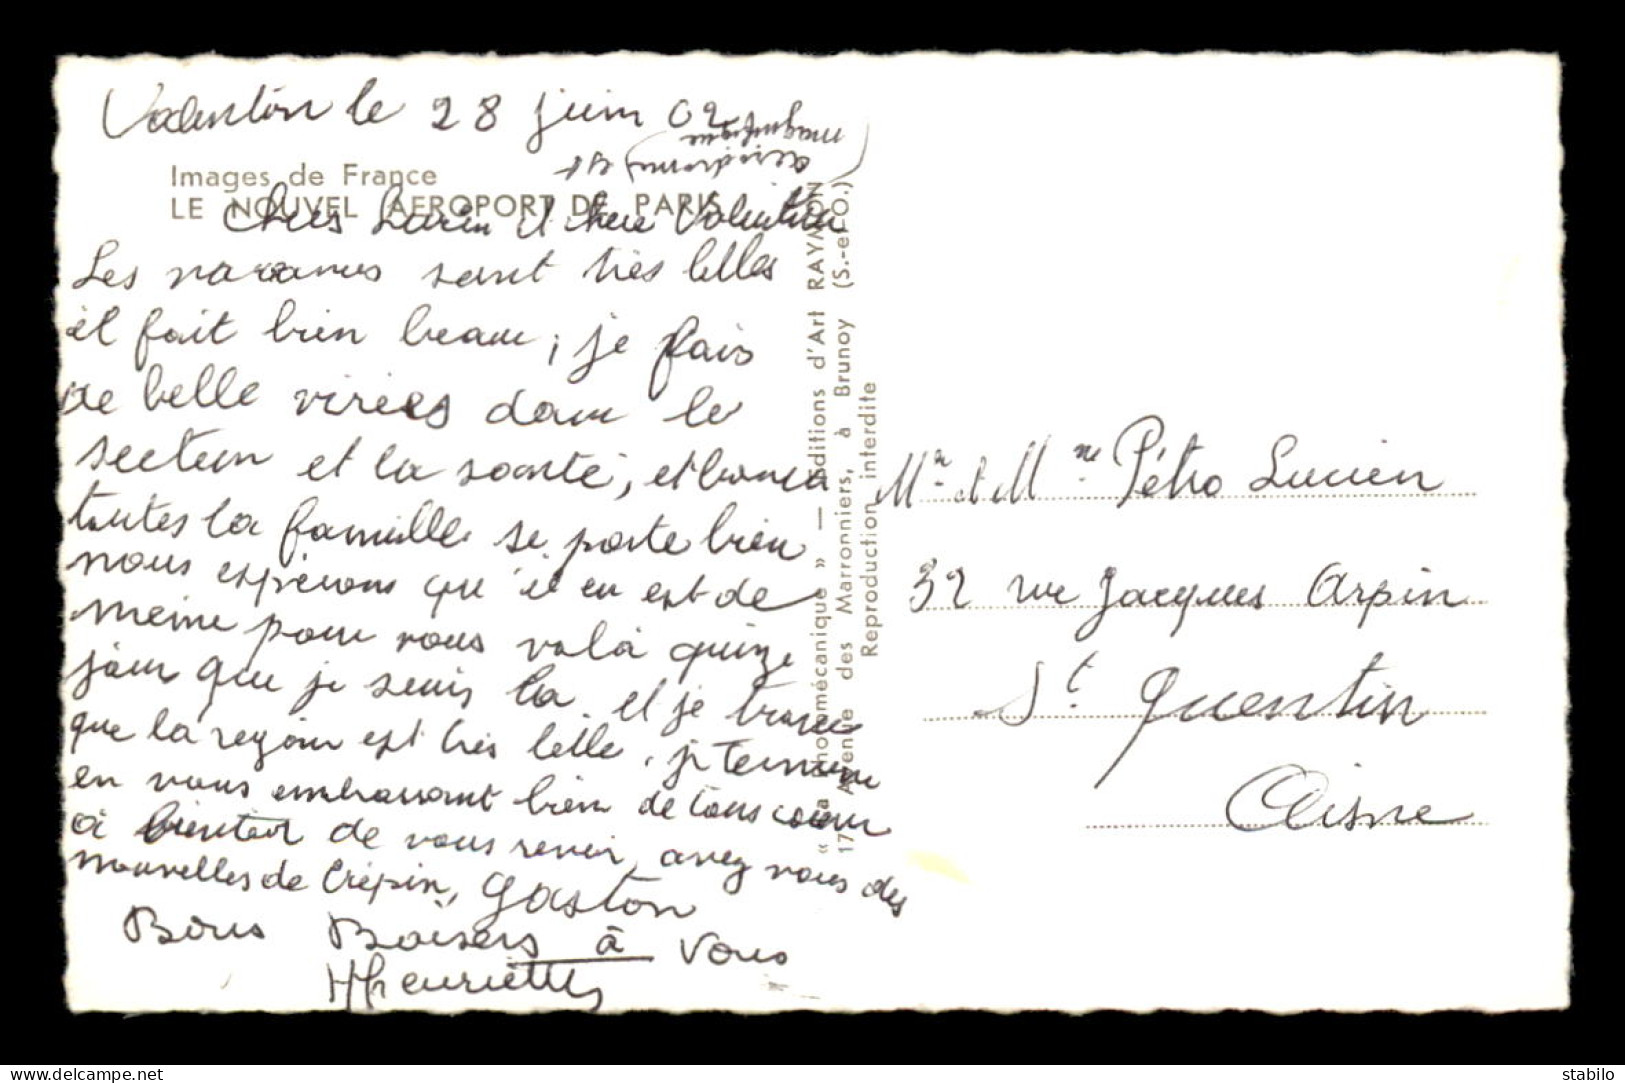 Valenton le 28 juin 62
aérodrome) est
magnifique
Images de France
LE NOUVEL AEROPORT DE PARIS
Chers Lucien et chère Valentine
Les vacances sont très belles
il fait bien beau, je fais
de belle virées dans le
secteur et la santé, est bonne
toutes la famille se porte bien
nous espérons qu'il en est de
meme pour vous voilà quinze
jour que je suis la et je trouve
que la region est très belle. je termine
en vous embrassant bien de tous coeur
à bientot de vous revoir, avez vous des
nouvelles de Crépin, Gaston
Bons Baisers à Vous
Henriette
« La Photomécanique » — Editions d'Art RAYMON
17, Avenue des Marronniers, à Brunoy (S.-et-O.)
Reproduction interdite
Mr et Mme Pétro Lucien
32 rue Jacques Arpin
St Quentin
Aisne
delcampe.net
stabilo